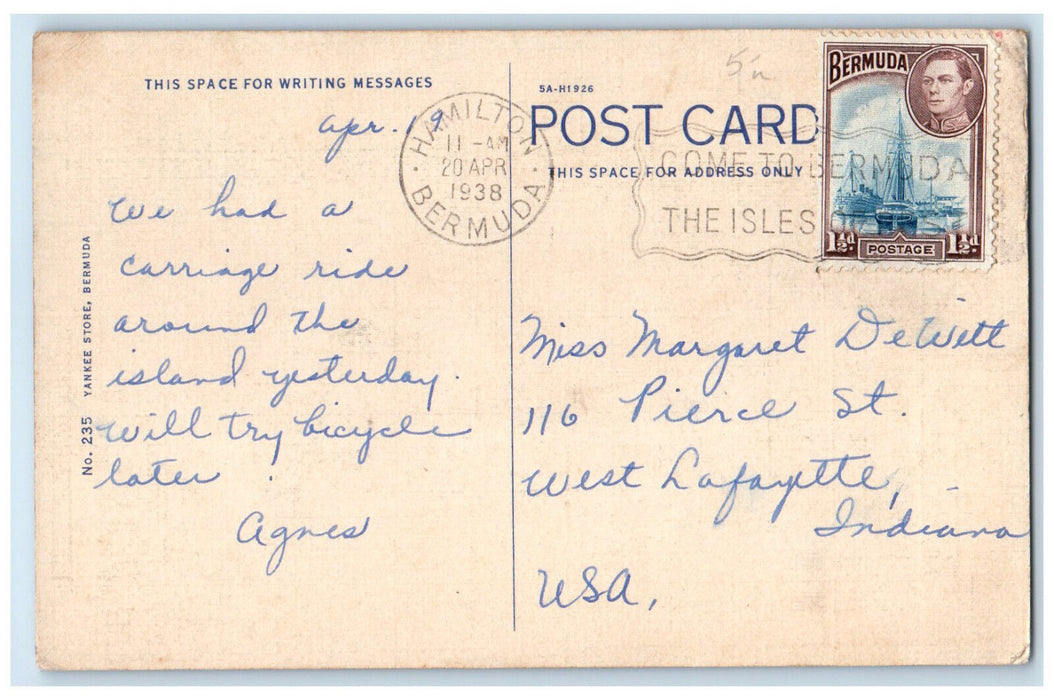 THIS SPACE FOR WRITING MESSAGES
Apr. 19
We had a
carriage ride
around the
island yesterday.
Will try bicycle
later.
Agnes
No. 235 YANKEE STORE, BERMUDA
HAMILTON
11-AM
20 APR
1938
BERMUDA
5A-H1926
POST CARD
THIS SPACE FOR ADDRESS ONLY
COME TO BERMUDA
THE ISLES
BERMUDA
1½d. POSTAGE 1½d.
Miss Margaret DeWitt
116 Pierce St.
West Lafayette,
Indiana
USA,